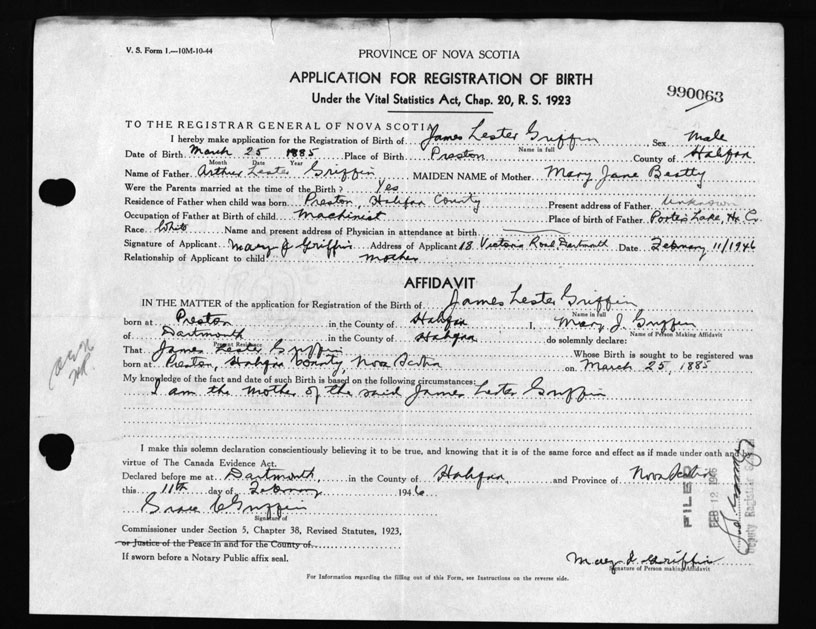 V. S. Form 1.—10M-10-44
PROVINCE OF NOVA SCOTIA
APPLICATION FOR REGISTRATION OF BIRTH
990063
Under the Vital Statistics Act, Chap. 20, R. S. 1923
TO THE REGISTRAR GENERAL OF NOVA SCOTIA
I hereby make application for the Registration of Birth of James Lester Griffin Sex Male
Name in full
Date of Birth March 25 1885 Place of Birth Preston County of Halifax
Month Date Year
Name of Father Arthur Lester Griffin MAIDEN NAME of Mother Mary Jane Beatty
Were the Parents married at the time of the Birth? Yes
Residence of Father when child was born Preston, Halifax County Present address of Father Unknown
Occupation of Father at Birth of child Machinist Place of birth of Father Porters Lake, Hx Co.
Race White Name and present address of Physician in attendance at birth
Signature of Applicant Mary J Griffin Address of Applicant 18 Victoria Road, Dartmouth Date February 11/1946
Relationship of Applicant to child mother
AFFIDAVIT
IN THE MATTER of the application for Registration of the Birth of James Lester Griffin
Name in full
born at Preston in the County of Halifax I, Mary J. Griffin
Name of Person Making Affidavit
of Dartmouth in the County of Halifax do solemnly declare:
Present Residence
That James Lester Griffin Whose Birth is sought to be registered was
born at Preston, Halifax County, Nova Scotia on March 25, 1885
My knowledge of the fact and date of such Birth is based on the following circumstances:
I am the mother of the said James Lester Griffin
I make this solemn declaration conscientiously believing it to be true, and knowing that it is of the same force and effect as if made under oath and by
virtue of The Canada Evidence Act.
Declared before me at Dartmouth, in the County of Halifax and Province of Nova Scotia
this 11th day of February 1946
Griffin
Signature of
Commissioner under Section 5, Chapter 38, Revised Statutes, 1923,
or Justice of the Peace in and for the County of
If sworn before a Notary Public affix seal.
Mary J. Griffin
Signature of Person making Affidavit
For Information regarding the filling out of this Form, see Instructions on the reverse side.
FILED
FEB 12 1946
Deputy Registrar